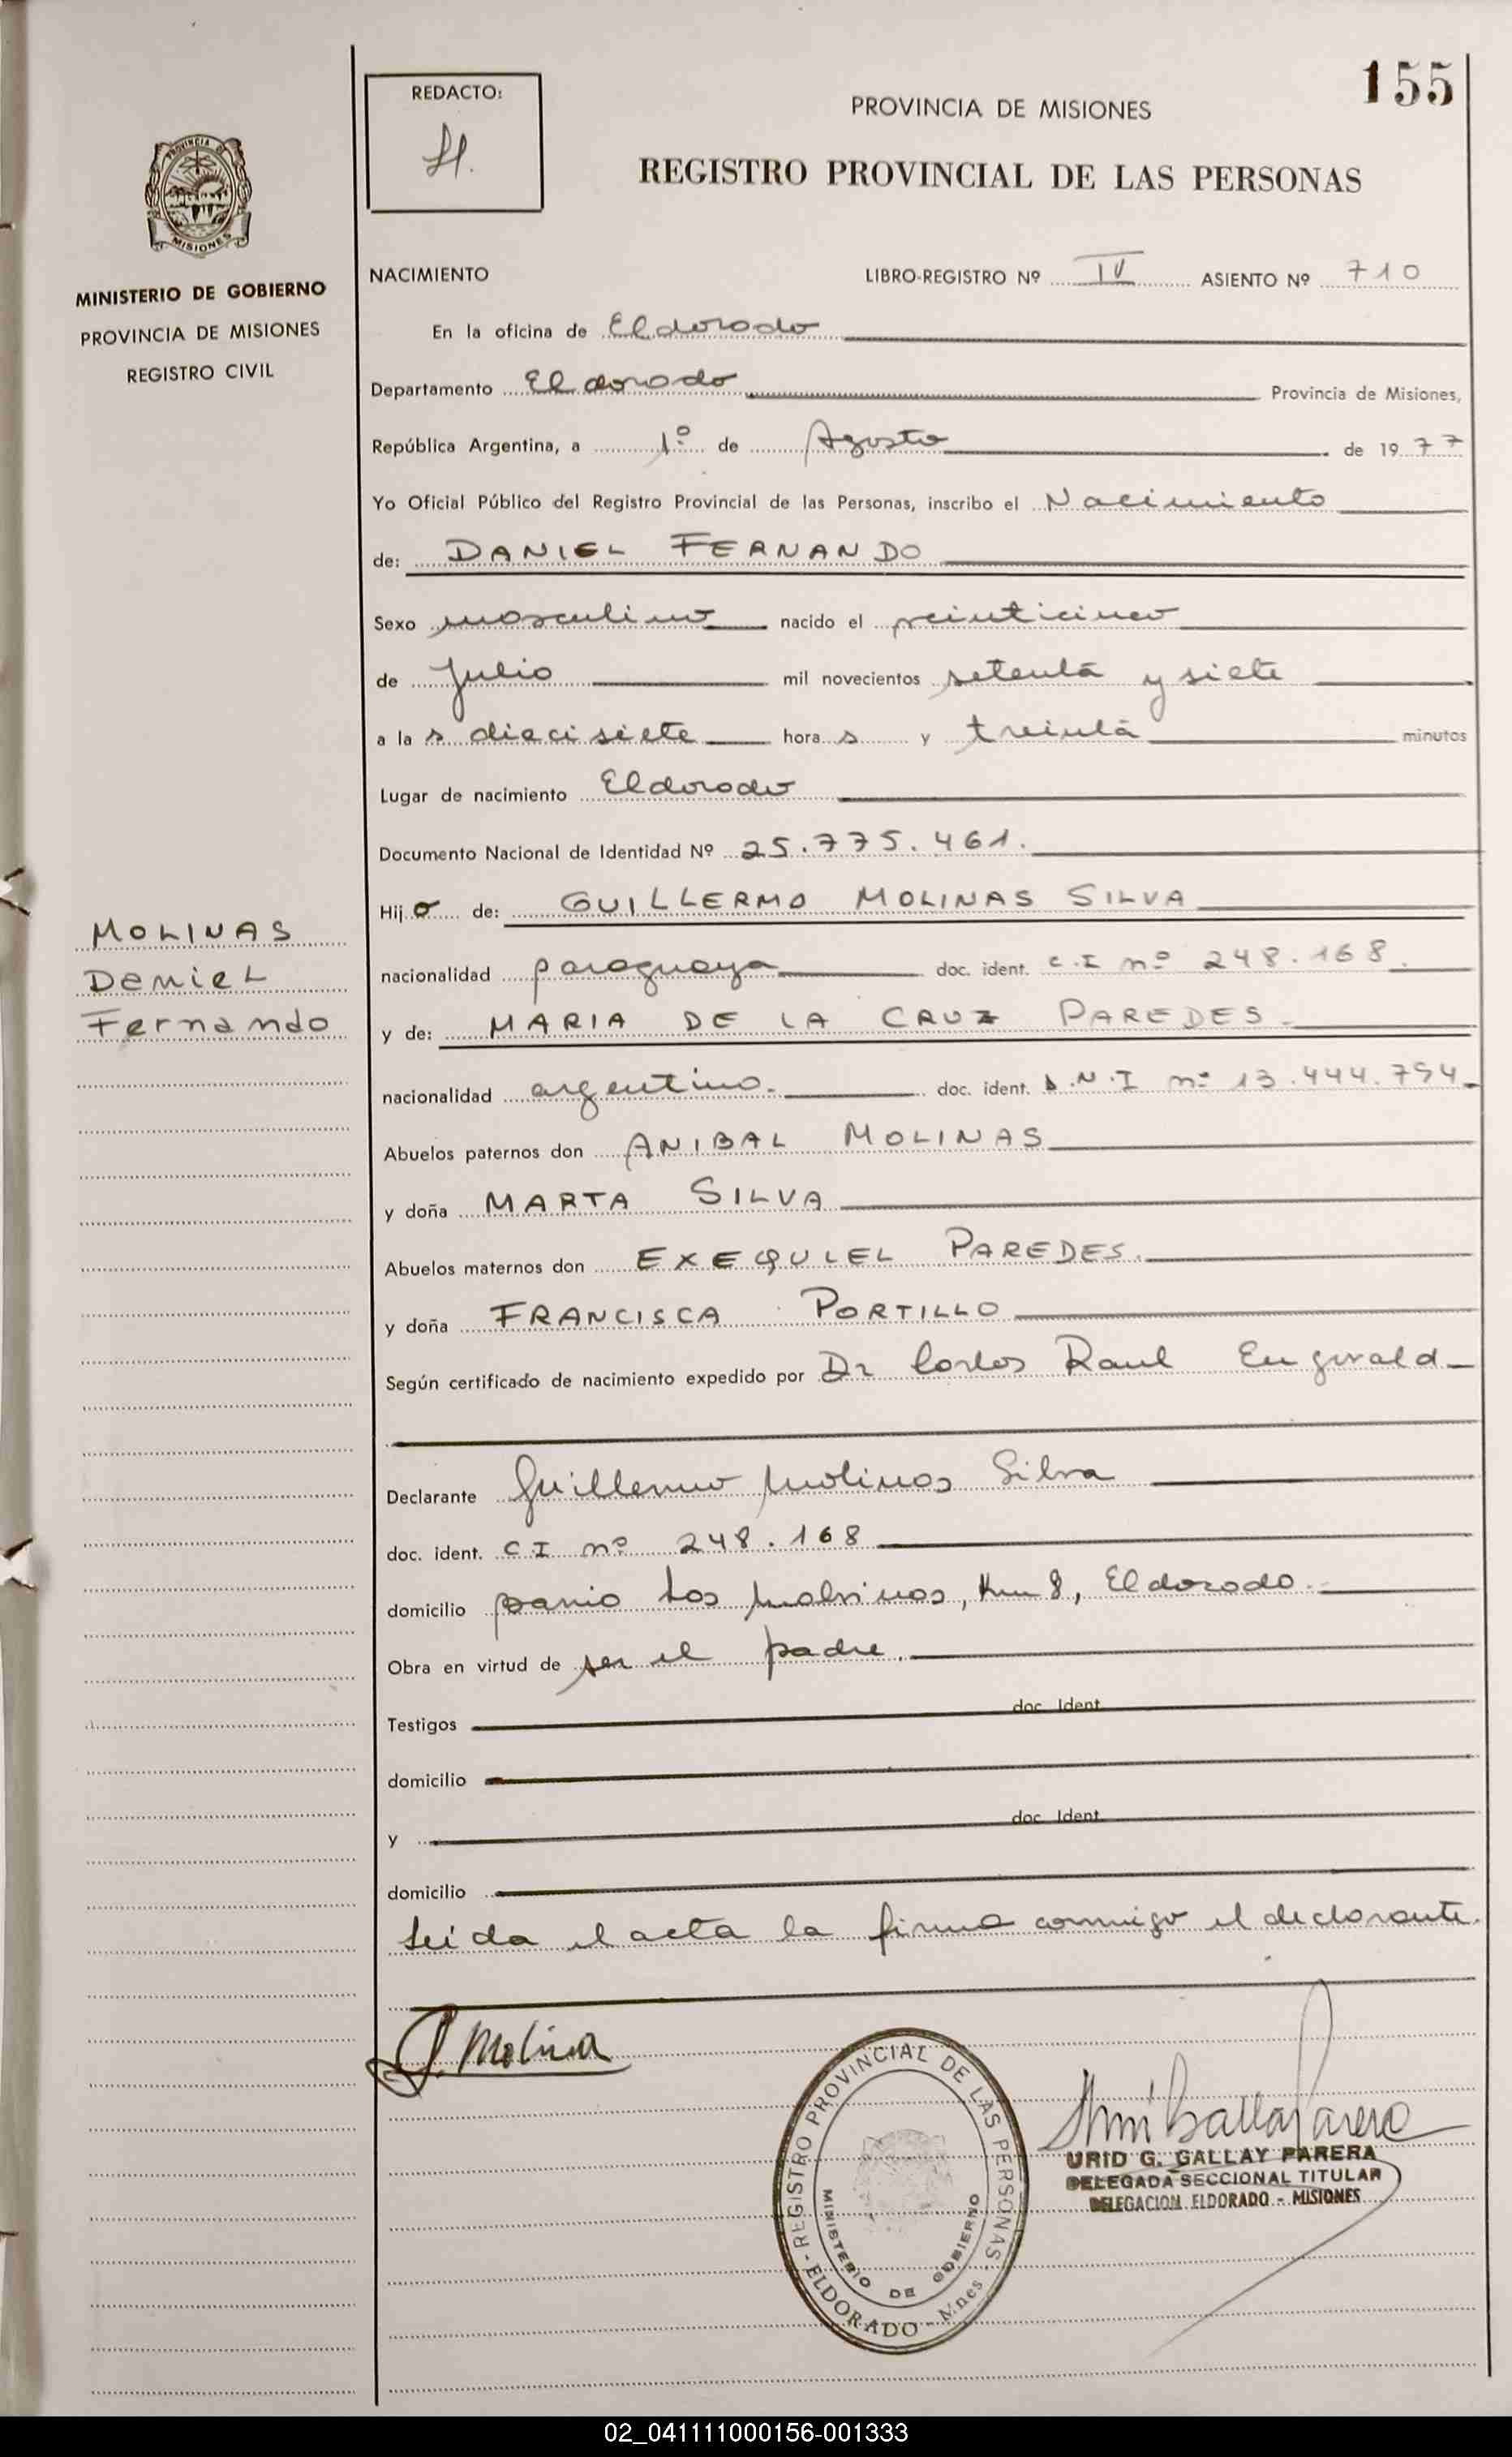 155
REDACTO:
PROVINCIA DE MISIONES
REGISTRO PROVINCIAL DE LAS PERSONAS
PROVINCIA DE
MISIONES
MINISTERIO DE GOBIERNO
PROVINCIA DE MISIONES
REGISTRO CIVIL
NACIMIENTO LIBRO-REGISTRO Nº IV ASIENTO Nº 710
En la oficina de Eldorado
Departamento Eldorado Provincia de Misiones,
República Argentina, a 1º de Agosto de 1977
Yo Oficial Público del Registro Provincial de las Personas, inscribo el Nacimiento
de: DANIEL FERNANDO
Sexo masculino nacido el veinticinco
de Julio mil novecientos setenta y siete
a las diecisiete horas y treinta minutos
Lugar de nacimiento Eldorado
Documento Nacional de Identidad Nº 25.775.461.
Hijo de: GUILLERMO MOLINAS SILVA
MOLINAS
Daniel
Fernando
nacionalidad paraguaya doc. ident. C.I nº 248.168.
y de: MARIA DE LA CRUZ PAREDES
nacionalidad argentina. doc. ident. D.N.I nº 13.444.794
Abuelos paternos don ANIBAL MOLINAS
y doña MARTA SILVA
Abuelos maternos don EXEQUIEL PAREDES.
y doña FRANCISCA PORTILLO
Según certificado de nacimiento expedido por Dr Carlos Raul Engwald
Declarante Guillermo Molinas Silva
doc. ident. C I nº 248.168
domicilio barrio Las Malvinas, Km 8, Eldorado.
Obra en virtud de ser el padre.
Testigos doc. Ident.
domicilio
y doc. Ident.
domicilio
Leida el acta la firma conmigo el declarante.
G. Molina
REGISTRO PROVINCIAL DE LAS PERSONAS
MINISTERIO DE GOBIERNO
ELDORADO - Mnes
URID G. GALLAY PARERA
DELEGADA SECCIONAL TITULAR
DELEGACION ELDORADO - MISIONES
02_041111000156-001333